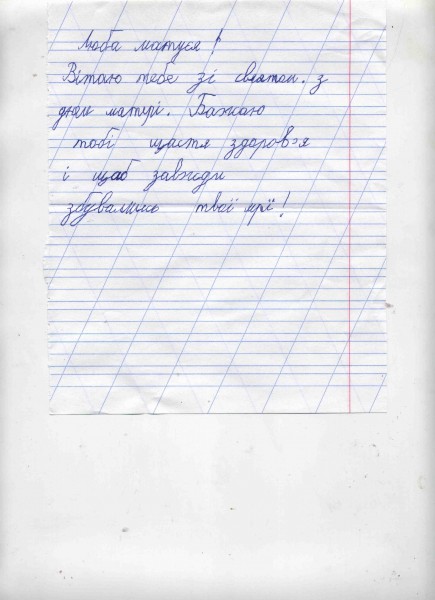 Люба матуся!
Вітаю тебе зі святом. з
днем матері. Бажаю
тобі щастя здоров'я
і щоб завжди
збувались твої мрії!